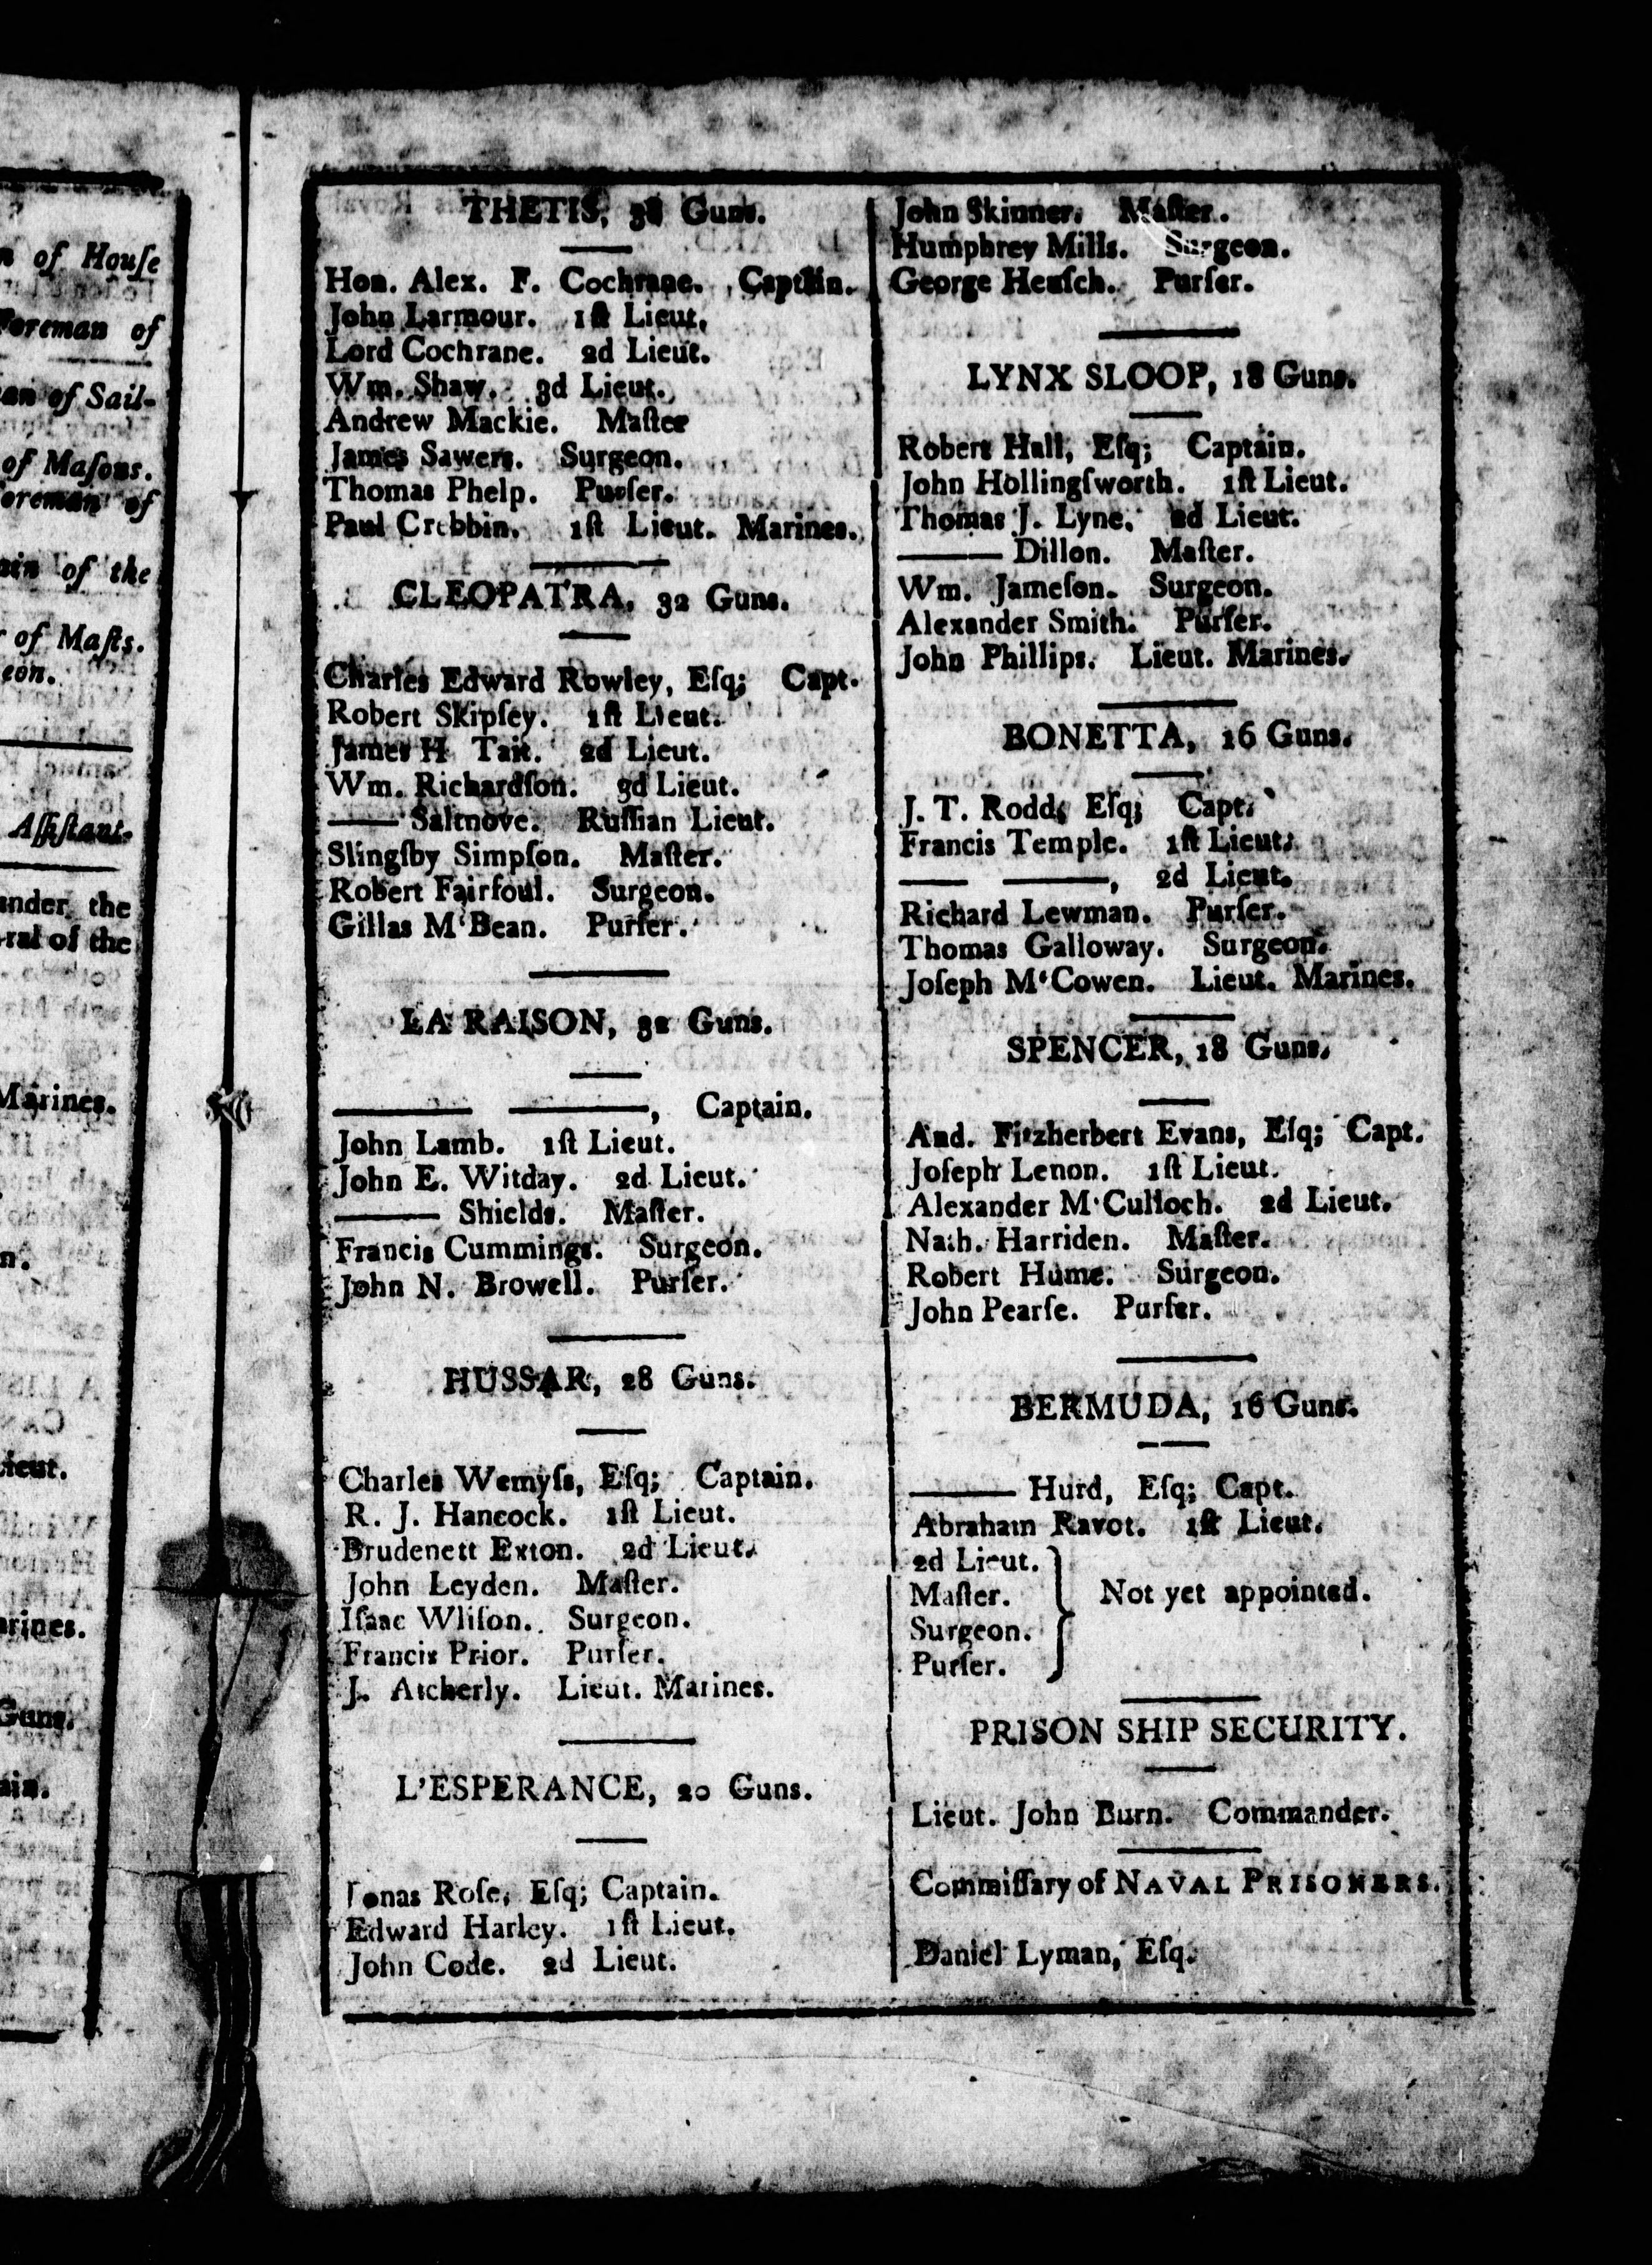 n of Houſe
Foreman of
an of Sail-
of Maſons.
oreman of
ain of the
of Maſts.
eon.
Aſſiſtant.
under the
ral of the
Marines.
n.
Lieut.
arines.
Guns.
ain.
THETIS, 38 Guns.
Hon. Alex. F. Cochrane. Captain.
John Larmour. 1ſt Lieut.
Lord Cochrane. 2d Lieut.
Wm. Shaw. 3d Lieut.
Andrew Mackie. Maſter
James Sawers. Surgeon.
Thomas Phelp. Purſer.
Paul Crebbin. 1ſt Lieut. Marines.
CLEOPATRA, 32 Guns.
Charles Edward Rowley, Eſq; Capt.
Robert Skipſey. 1ſt Lieut.
James H Tait. 2d Lieut.
Wm. Richardſon. 3d Lieut.
—— Saltnove. Ruſſian Lieut.
Slingſby Simpſon. Maſter.
Robert Fairfoul. Surgeon.
Gillas M'Bean. Purſer.
LA RAISON, 32 Guns.
—— ——, Captain.
John Lamb. 1ſt Lieut.
John E. Witday. 2d Lieut.
—— Shields. Maſter.
Francis Cummings. Surgeon.
John N. Browell. Purſer.
HUSSAR, 28 Guns.
Charles Wemyſs, Eſq; Captain.
R. J. Hancock. 1ſt Lieut.
Brudenett Exton. 2d Lieut.
John Leyden. Maſter.
Iſaac Wliſon. Surgeon.
Francis Prior. Purſer.
J. Atcherly. Lieut. Marines.
L'ESPERANCE, 20 Guns.
Jonas Roſe, Eſq; Captain.
Edward Harley. 1ſt Lieut.
John Code. 2d Lieut.
John Skinner. Maſter.
Humphrey Mills. Surgeon.
George Henſch. Purſer.
LYNX SLOOP, 18 Guns.
Robert Hall, Eſq; Captain.
John Hollingſworth. 1ſt Lieut.
Thomas J. Lyne. 2d Lieut.
—— Dillon. Maſter.
Wm. Jameſon. Surgeon.
Alexander Smith. Purſer.
John Phillips. Lieut. Marines.
BONETTA, 16 Guns.
J. T. Rodd, Eſq; Capt.
Francis Temple. 1ſt Lieut.
—— ——, 2d Lieut.
Richard Lewman. Purſer.
Thomas Galloway. Surgeon.
Joſeph M'Cowen. Lieut. Marines.
SPENCER, 18 Guns.
And. Fitzherbert Evans, Eſq; Capt.
Joſeph Lenon. 1ſt Lieut.
Alexander M'Culloch. 2d Lieut.
Nath. Harriden. Maſter.
Robert Hume. Surgeon.
John Pearſe. Purſer.
BERMUDA, 16 Guns.
—— Hurd, Eſq; Capt.
Abraham Ravot. 1ſt Lieut.
2d Lieut.
Maſter. Not yet appointed.
Surgeon.
Purſer.
PRISON SHIP SECURITY.
Lieut. John Burn. Commander.
Commiſſary of NAVAL PRISONERS.
Daniel Lyman, Eſq.